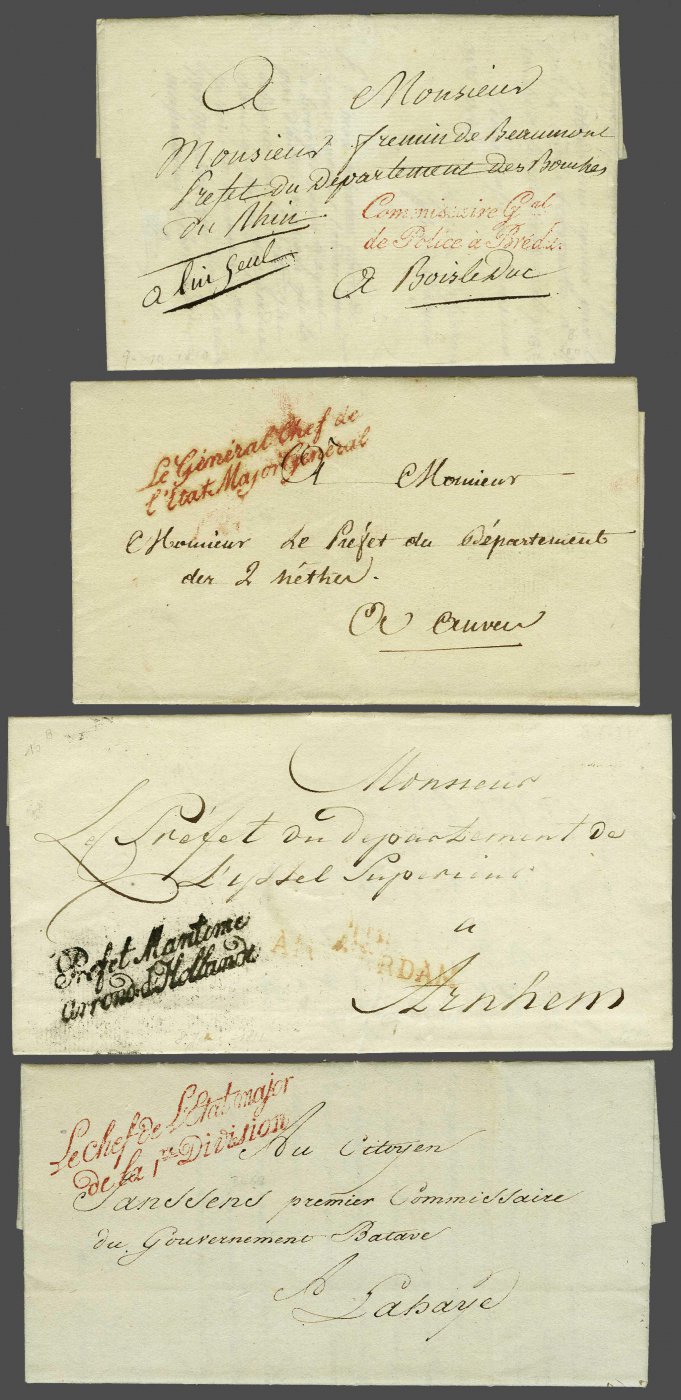 A Monsieur
Monsieur fremin de Beaumont
Prefet du Département des Bouches
du Rhin
Commissaire Gᵃˡ
de Police à Bréda.
a lui Seul
A Bois le Duc
Le Général Chef de
l'Etat Major Général
A Monsieur
Monsieur Le Préfet du Département
des 2 néthes.
A anvers
Monsieur
Le Préfet du departement de
L'yssel Superieur
a
AMSTERDAM
Prefet Maritime
arrond. d'Hollande
Arnhem
Le chef de L'Etat major
de la 1ʳᵉ Division
Au Citoyen
Janssens premier Commissaire
du Gouvernement Batave
A Lahaye